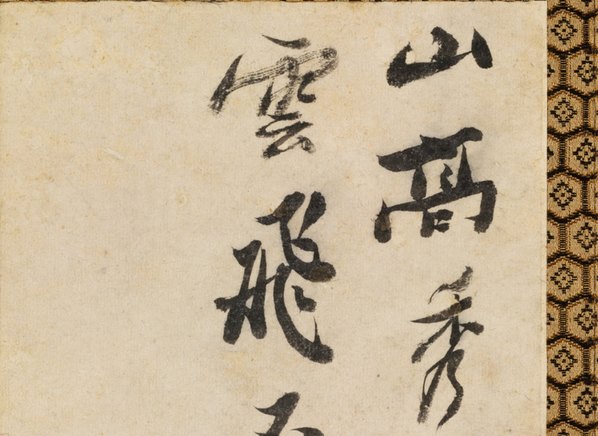 山高秀
雲飛